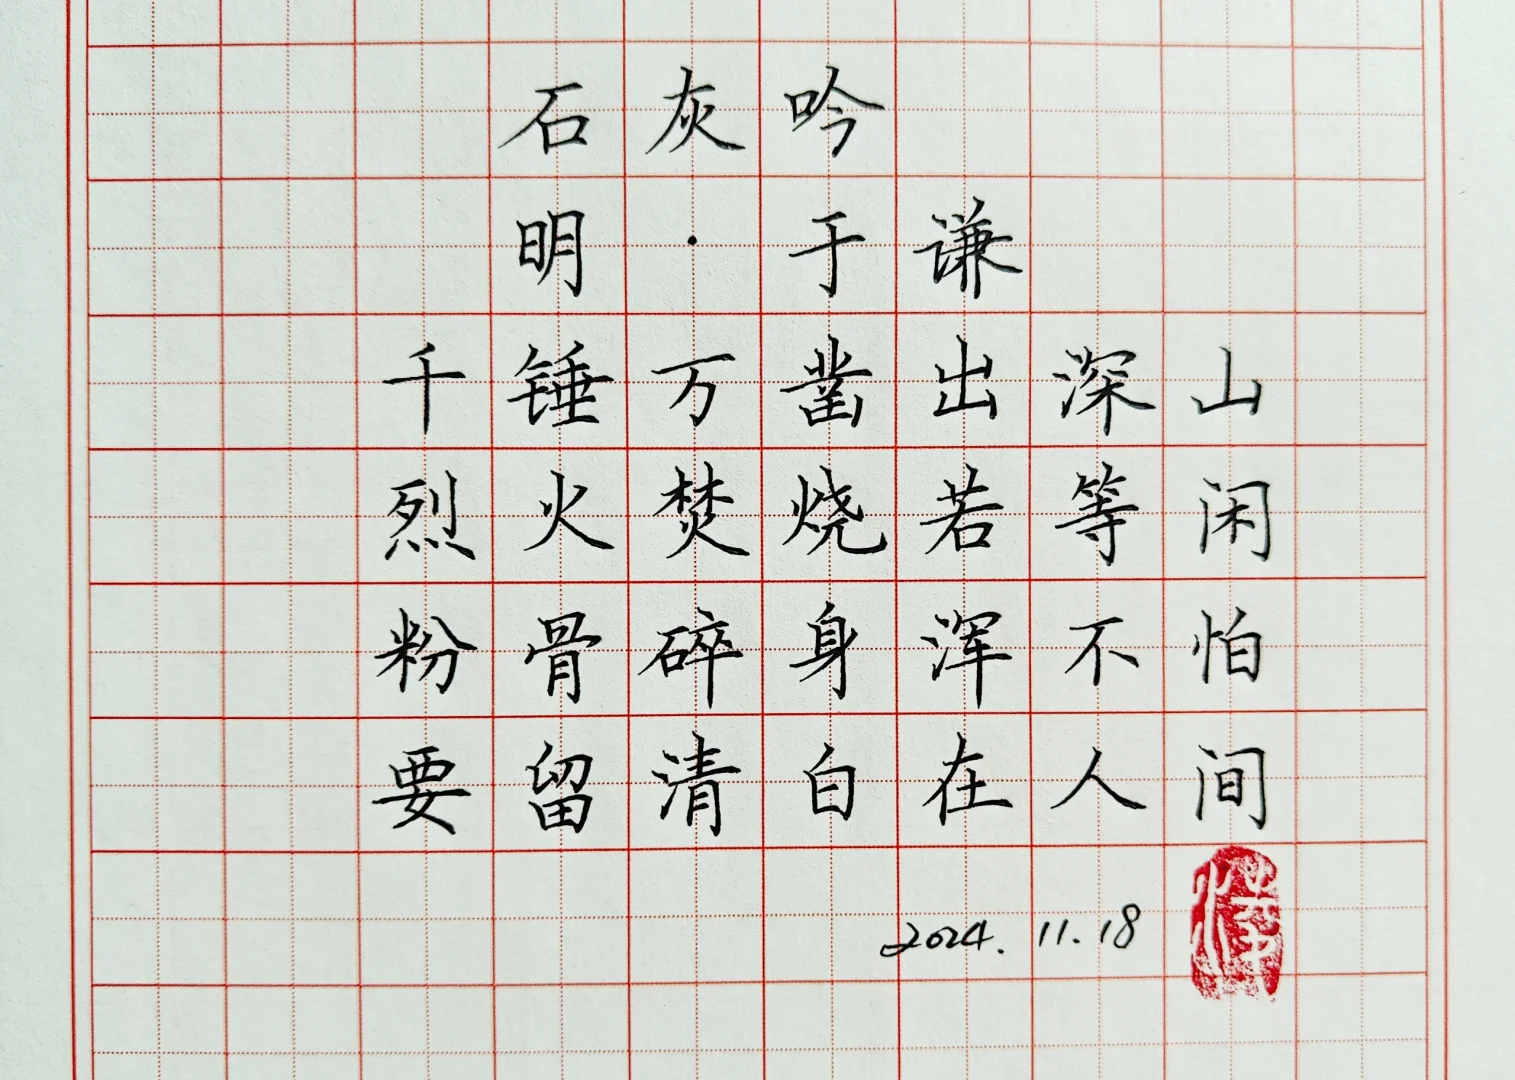 石灰吟
明·于谦
千锤万凿出深山
烈火焚烧若等闲
粉骨碎身浑不怕
要留清白在人间
2024.11.18